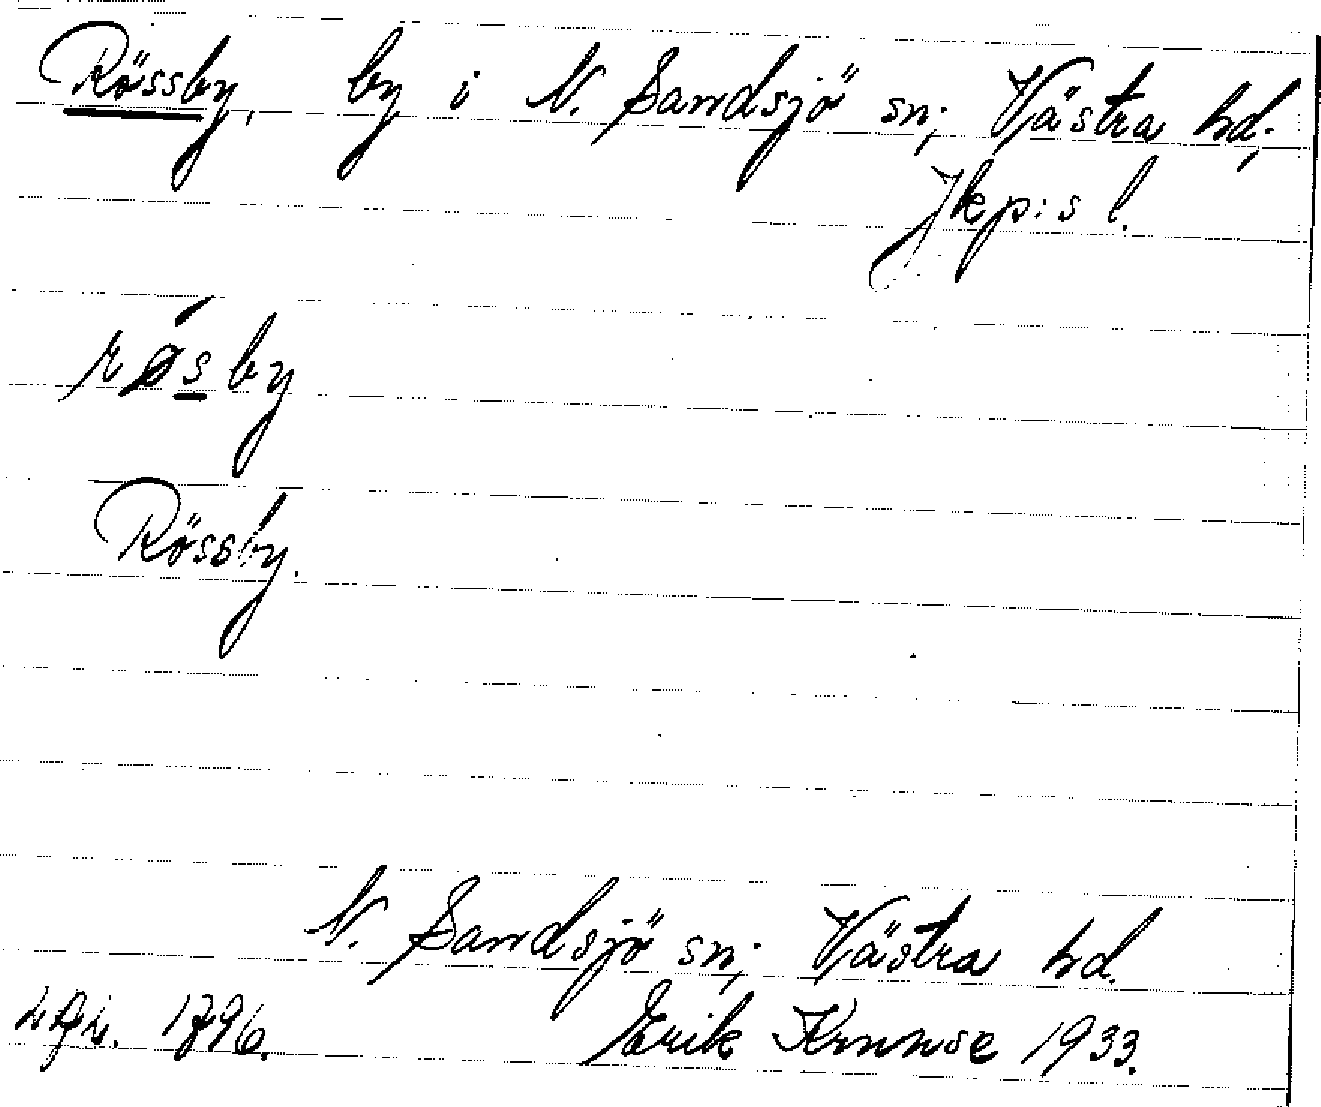 Rössby, by i N. Sandsjö sn; Västra hd;
Jkp:s l.
røsby
Rössby.
N. Sandsjö sn; Västra hd.
1796. Erik Krunse 1933.